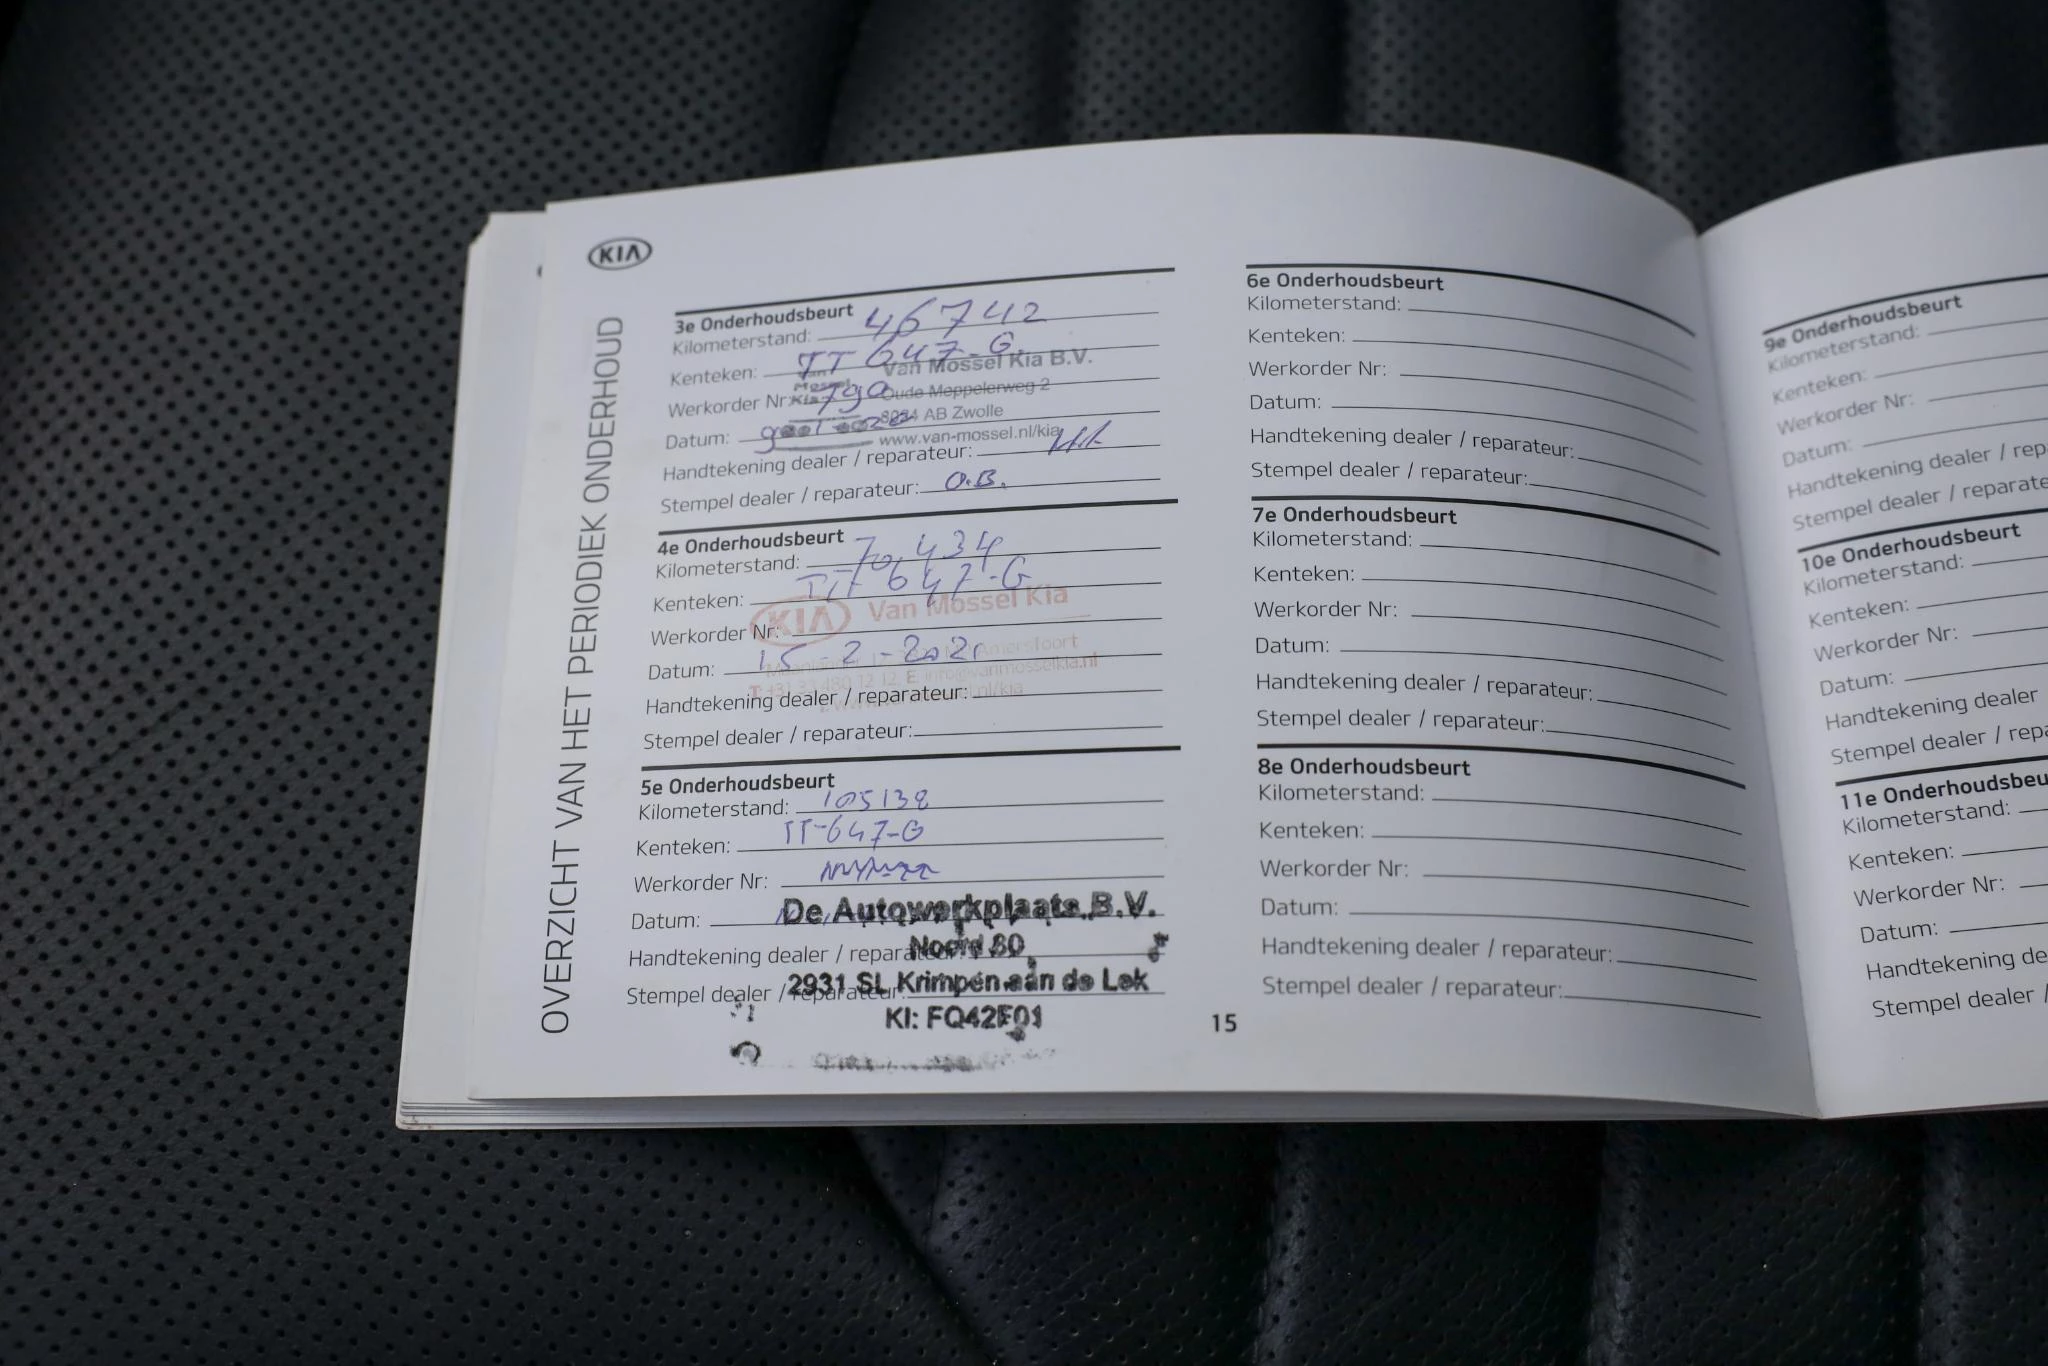 KIA
OVERZICHT VAN HET PERIODIEK ONDERHOUD
3e Onderhoudsbeurt
Kilometerstand: 46742
Kenteken: TT 647-G
Van Mossel Kia
Van Mossel Kia B.V.
Werkorder Nr:
Oude Meppelerweg 2
8034 AB Zwolle
Datum:
www.van-mossel.nl/kia
Handtekening dealer / reparateur:
Stempel dealer / reparateur: O.B.
4e Onderhoudsbeurt
Kilometerstand: 70.434
Kenteken: TT-647-G
KIA Van Mossel Kia
Werkorder Nr:
Datum: 15-2-2021
Amersfoort
Handtekening dealer / reparateur:
Stempel dealer / reparateur:
5e Onderhoudsbeurt
Kilometerstand: 105138
Kenteken: TT-647-G
Werkorder Nr:
Datum:
De Autowerkplaats B.V.
Handtekening dealer / reparateur:
Noord 80
2931 SL Krimpen aan de Lek
Stempel dealer / reparateur:
KI: FQ42F01
6e Onderhoudsbeurt
Kilometerstand:
Kenteken:
Werkorder Nr:
Datum:
Handtekening dealer / reparateur:
Stempel dealer / reparateur:
7e Onderhoudsbeurt
Kilometerstand:
Kenteken:
Werkorder Nr:
Datum:
Handtekening dealer / reparateur:
Stempel dealer / reparateur:
8e Onderhoudsbeurt
Kilometerstand:
Kenteken:
Werkorder Nr:
Datum:
Handtekening dealer / reparateur:
Stempel dealer / reparateur:
15
9e Onderhoudsbeurt
Kilometerstand:
Kenteken:
Werkorder Nr:
Datum:
Handtekening dealer / rep
Stempel dealer / reparate
10e Onderhoudsbeurt
Kilometerstand:
Kenteken:
Werkorder Nr:
Datum:
Handtekening dealer
Stempel dealer / repa
11e Onderhoudsbeu
Kilometerstand:
Kenteken:
Werkorder Nr:
Datum:
Handtekening de
Stempel dealer /